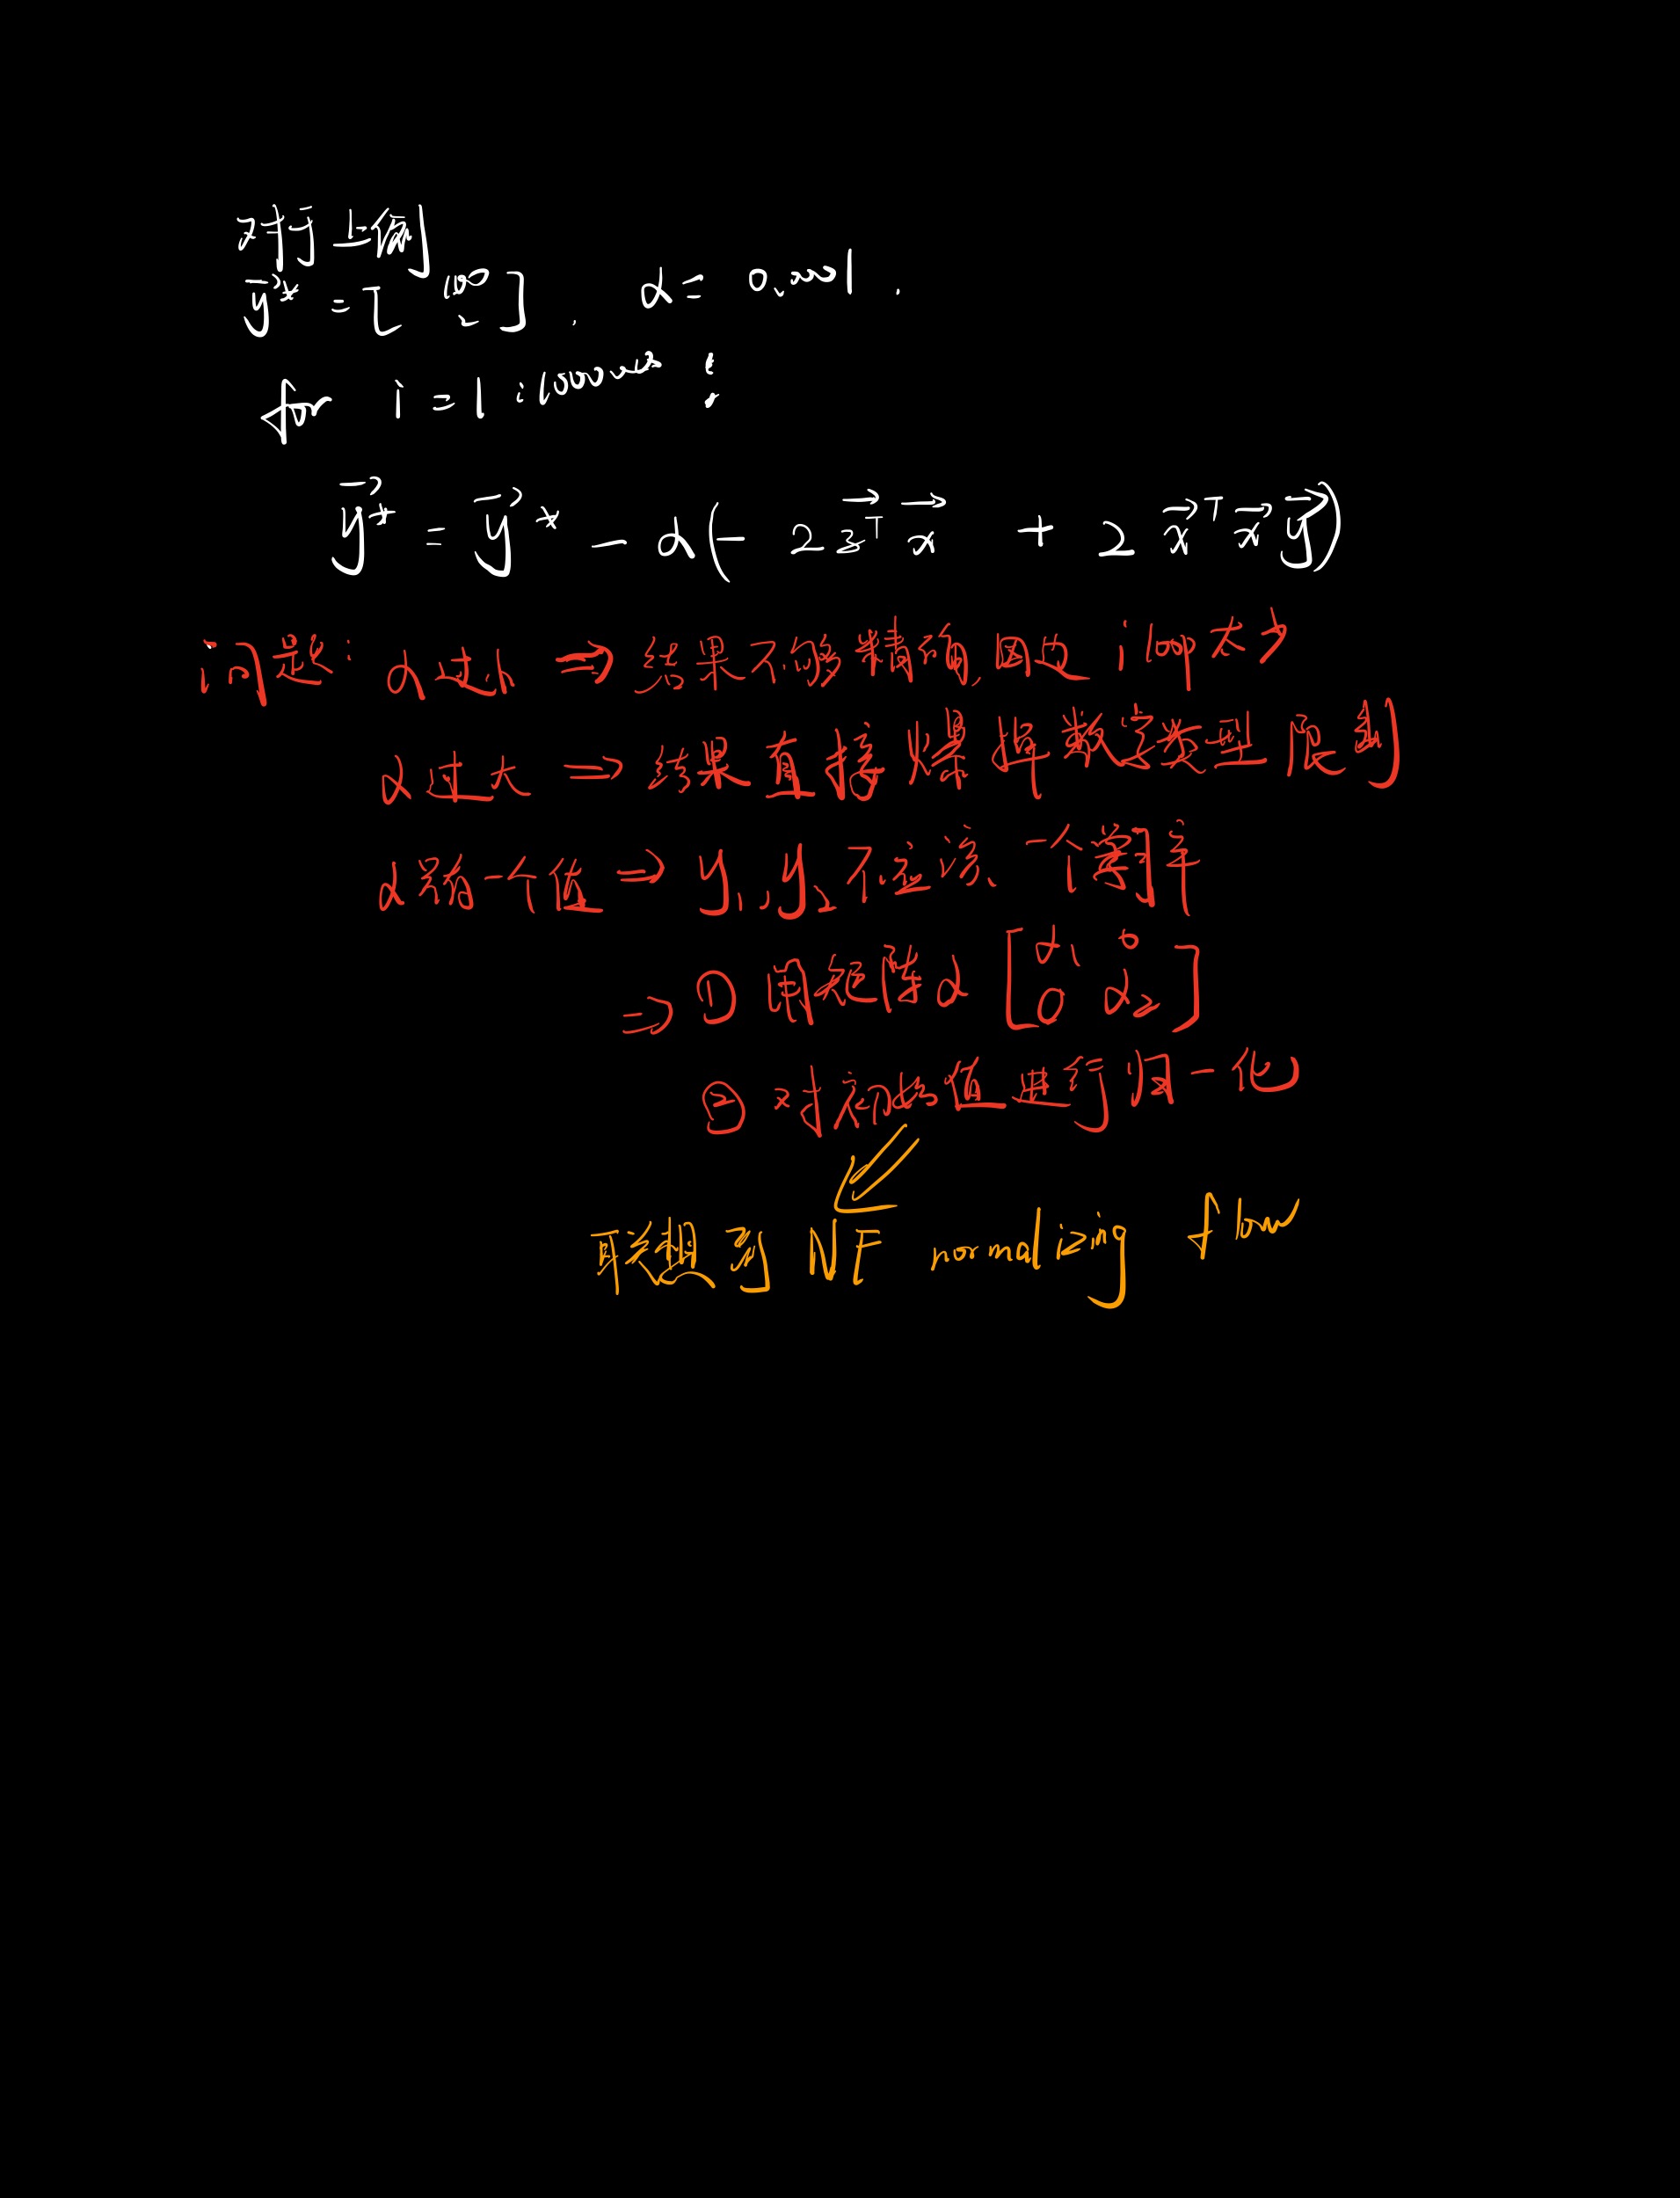 对于上例
y⃗* = [100 2], α = 0.0001.
for i = 1:1000000 :
y⃗* = y⃗* - α(- 2z⃗ᵀx⃗ + 2x⃗ᵀx⃗y⃗)
问题: α过小 ⇒ 结果不够精确,因为 i loop 太少
α过大 ⇒ 结果直接爆掉数字类型限制
α只有一个值 ⇒ y₁,y₂不应该一个学习率
⇒ ① 用矩阵α [α₁ 0 0 α₂]
② 对初始值进行归一化
联想到 NF normalizing flow